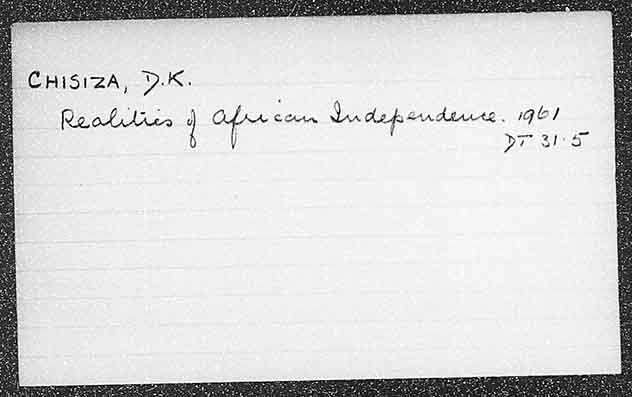 CHISIZA, D.K.
Realities of African Independence. 1961
DT 31.5